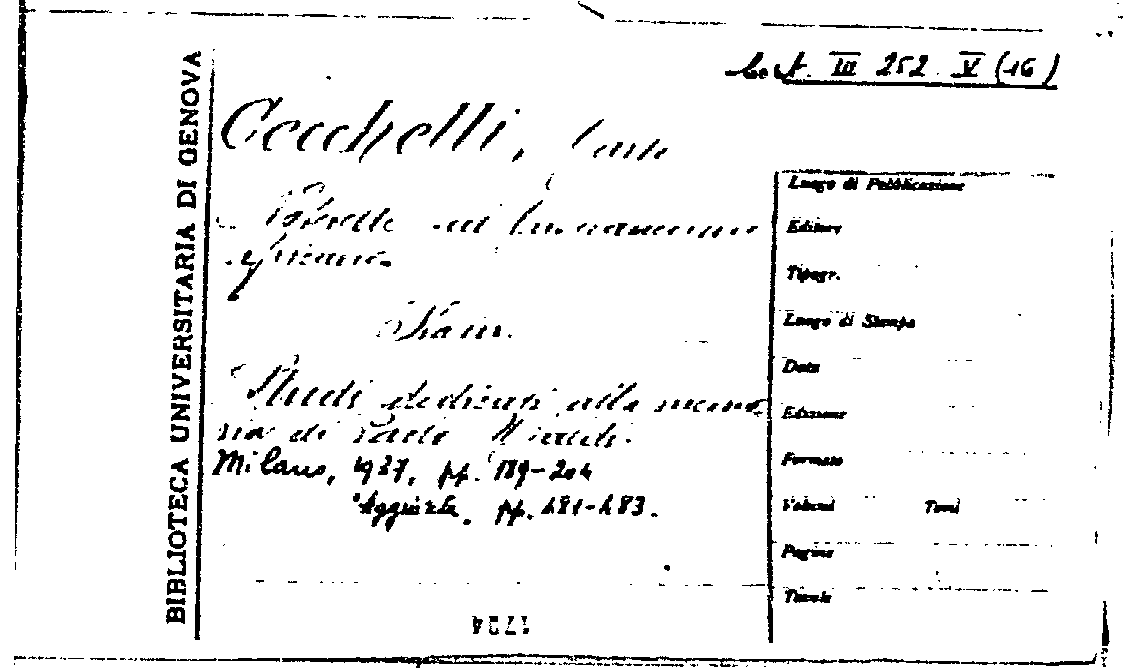 BIBLIOTECA UNIVERSITARIA DI GENOVA
III 252. V (16)
Cecchelli, Carlo
africano
Studi dedicati alla memo
ria di Paolo
Milano, 1937, pp. 189-204
Aggiunte, pp. 481-483.
Luogo di Pubblicazione
Editore
Tipogr.
Luogo di Stampa
Data
Edizione
Formato
Volumi Tomi
Pagine
Tavole
1724